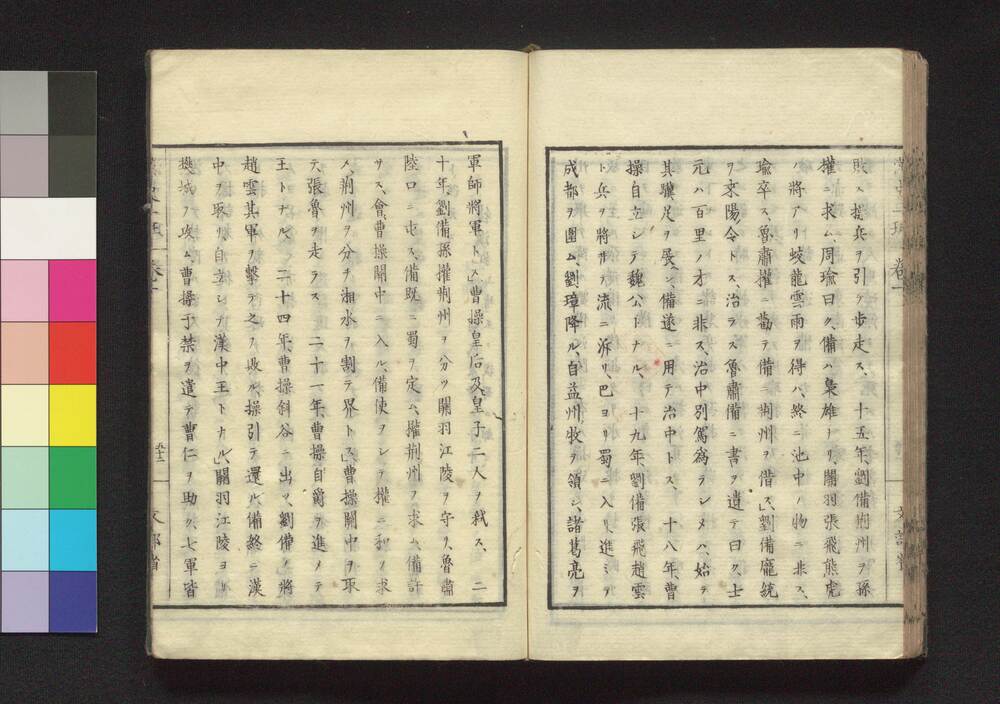 敗ス操兵ヲ引テ歩走ス、十五年、劉備荊州ヲ孫
權ニ求ム、周瑜曰ク、備ハ梟雄ナリ、關羽張飛熊虎
ハ將アリ蛟龍雲雨ヲ得ハ、終ニ池中ノ物ニ非ス、
瑜卒ス、魯肅權ニ勸テ備ニ荊州ヲ借ス、劉備龐統
ヲ耒陽ノ令トス、治ラス魯肅備ニ書ヲ遺テ曰ク、士
元ハ百里ノ才ニ非ス、治中別駕爲ラシメハ、始テ
其驥足ヲ展ン、備遂ニ用テ治中トス、十八年、曹
操自立シテ魏公トナル、十九年、劉備張飛趙雲
ト兵ヲ將ヰテ流ニ泝リ、巴ヨリ蜀ニ入リ、進ミテ
成都ヲ圍ム、劉璋降ル、自益州ノ牧ヲ領シ、諸葛亮ヲ
軍師將軍トス、曹操皇后及皇子二人ヲ弑ス、二
十年劉備孫權荊州ヲ分ツ關羽江陵ヲ守リ、魯肅
陸口ニ屯ス、備既ニ蜀ヲ定ム、權荊州ヲ求ム、備許
サス、會曹操關中ニ入ル、備使ヲシテ權ニ和ヲ求
メ、荊州ヲ分チ湘水ヲ割テ界トス、曹操關中ヲ取
テ、張魯ヲ走ラス二十一年、曹操自爵ヲ進メテ
王トナル、二十四年、曹操斜谷ニ出ツ、劉備ノ將
趙雲其軍ヲ擊テ之ヲ敗ル、操引テ還ル、備終ニ漢
中ヲ取リ、自立シテ漢中王トナル、關羽江陵ヨリ
樊城ヲ攻ム、曹操于禁ヲ遣テ曹仁ヲ助ク、七軍皆
卷一
五十三
文部省